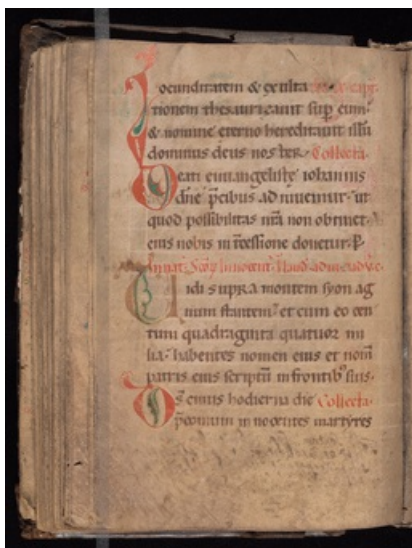 Iocunditatem & exulta
tionem thesaurizavit sup eum
& nomine eterno hereditavit illū
dominus deus noster. Collecta.
Beati euuangeliste iohannis
dn̄e p̄cibus adiuuemur. ut
quod possibilitas nr̄a non obtinet.
eius nobis intercessione donetur. P.
Innocent
Vidi supra montem syon ag
num stantem. et cum eo cen
tum quadraginta quatuor mi
lia. habentes nomen eius et nom̄
patris eius scriptū in frontib; suis.
Ds̄ cuius hodierna die Collecta.
p̄conium innocentes martyres